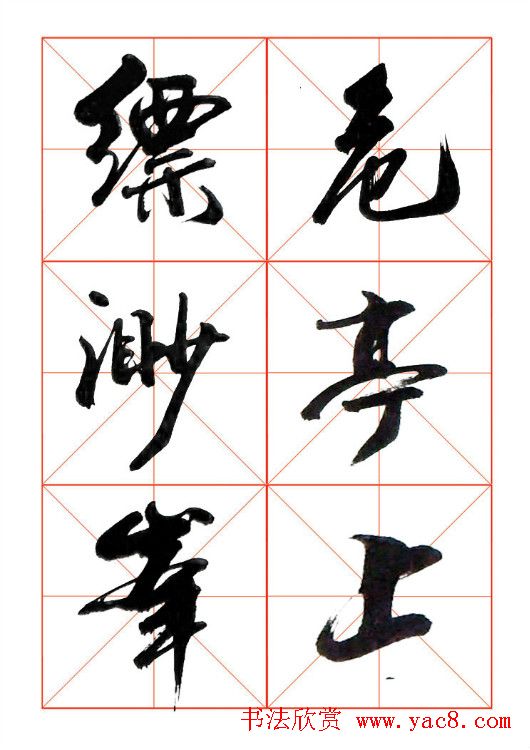 危亭上
缥渺峯
书法欣赏 www.yac8.com